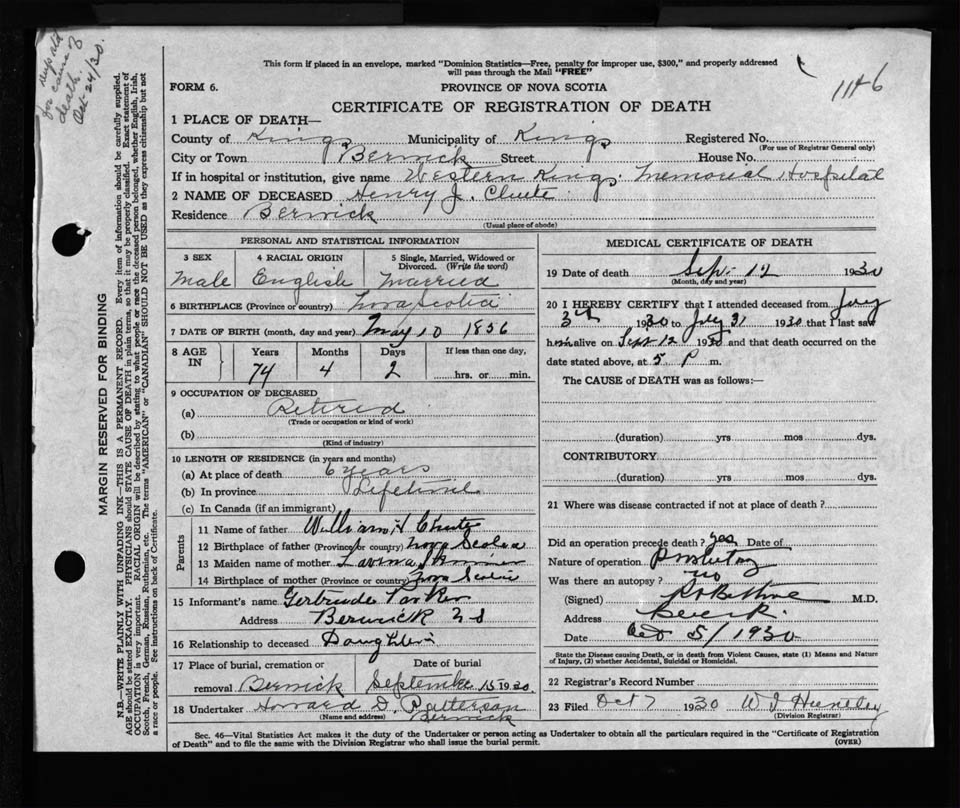 for cause of
death.
Oct. 24/30.
This form if placed in an envelope, marked "Dominion Statistics—Free, penalty for improper use, $300," and properly addressed
will pass through the Mail "FREE"
FORM 6.
PROVINCE OF NOVA SCOTIA
1146
CERTIFICATE OF REGISTRATION OF DEATH
1 PLACE OF DEATH—
County of Kings Municipality of Kings Registered No.
(For use of Registrar General only)
City or Town Berwick Street House No.
If in hospital or institution, give name Western Kings Memorial Hospital
2 NAME OF DECEASED Henry J. Chute
Residence Berwick
(Usual place of abode)
PERSONAL AND STATISTICAL INFORMATION
3 SEX 4 RACIAL ORIGIN 5 Single, Married, Widowed or
Divorced. (Write the word)
Male English Married
6 BIRTHPLACE (Province or country) Nova Scotia
7 DATE OF BIRTH (month, day and year) May 10 1856
8 AGE IN Years Months Days If less than one day,
74 4 2 hrs. or min.
9 OCCUPATION OF DECEASED
(a) Retired
(Trade or occupation or kind of work)
(b)
(Kind of industry)
10 LENGTH OF RESIDENCE (in years and months)
(a) At place of death 6 years
(b) In province Lifetime
(c) In Canada (if an immigrant)
Parents
11 Name of father William H Chute
12 Birthplace of father (Province or country) Nova Scotia
13 Maiden name of mother Lavina Skinner
14 Birthplace of mother (Province or country) Nova Scotia
15 Informant's name Gertrude Parker
Address Berwick N S
16 Relationship to deceased Daughter
17 Place of burial, cremation or Date of burial
removal Berwick September 15 1930.
18 Undertaker Howard D. Patterson
(Name and address) Berwick
MEDICAL CERTIFICATE OF DEATH
19 Date of death Sep. 12 1930
(Month, day and year)
20 I HEREBY CERTIFY that I attended deceased from July
3th 1930 to July 31 1930 that I last saw
him alive on Sept 12 1930 and that death occurred on the
date stated above, at 5 P m.
The CAUSE of DEATH was as follows:—
(duration) yrs mos dys.
CONTRIBUTORY
(duration) yrs mos dys.
21 Where was disease contracted if not at place of death?
Did an operation precede death? yes Date of
Nature of operation
Was there an autopsy? no
(Signed) M.D.
Address Berwick
Date Oct 5/1930
State the Disease causing Death, or in death from Violent Causes, state (1) Means and Nature
of Injury, (2) whether Accidental, Suicidal or Homicidal.
22 Registrar's Record Number
23 Filed Oct 7 1930
(Division Registrar)
Sec. 46—Vital Statistics Act makes it the duty of the Undertaker or person acting as Undertaker to obtain all the particulars required in the "Certificate of Registration
of Death" and to file the same with the Division Registrar who shall issue the burial permit.
(OVER)
MARGIN RESERVED FOR BINDING
N.B.—WRITE PLAINLY WITH UNFADING INK—THIS IS A PERMANENT RECORD. Every item of information should be carefully supplied.
AGE should be stated EXACTLY. PHYSICIANS should STATE CAUSE OF DEATH in plain terms, so that it may be properly classified. Exact statement of
OCCUPATION is very important. RACIAL ORIGIN will be described by stating to what people or race the deceased person belonged, whether English, Irish,
Scotch, French, German, Russian, Ruthenian, etc. The terms "AMERICAN" or "CANADIAN" SHOULD NOT BE USED as they express citizenship but not
a race or people. See instructions on back of Certificate.